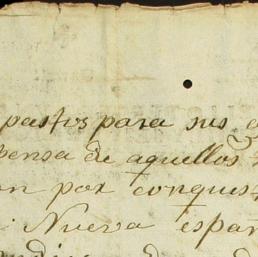 pastos para sus
pensa de aquellos
on por conquis
Nueva españ